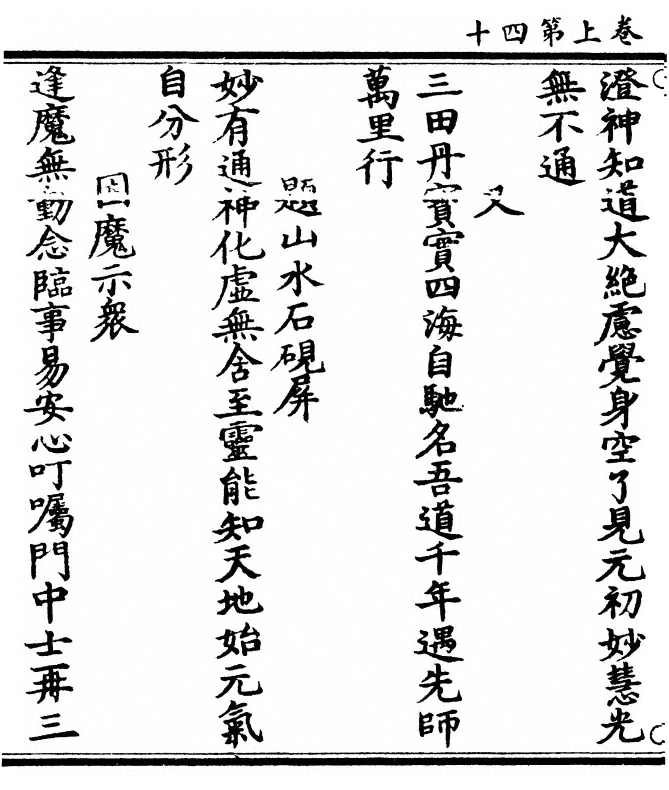 卷上第四十
澄神知道大絶慮覺身空了見元初妙慧光
無不通
又
三田丹寶實四海自馳名吾道千年遇先師
萬里行
題山水石硯屏
妙有通神化虛無含至靈能知天地始元氣
自分形
因魔示衆
逢魔無動念臨事易安心叮囑門中士再三